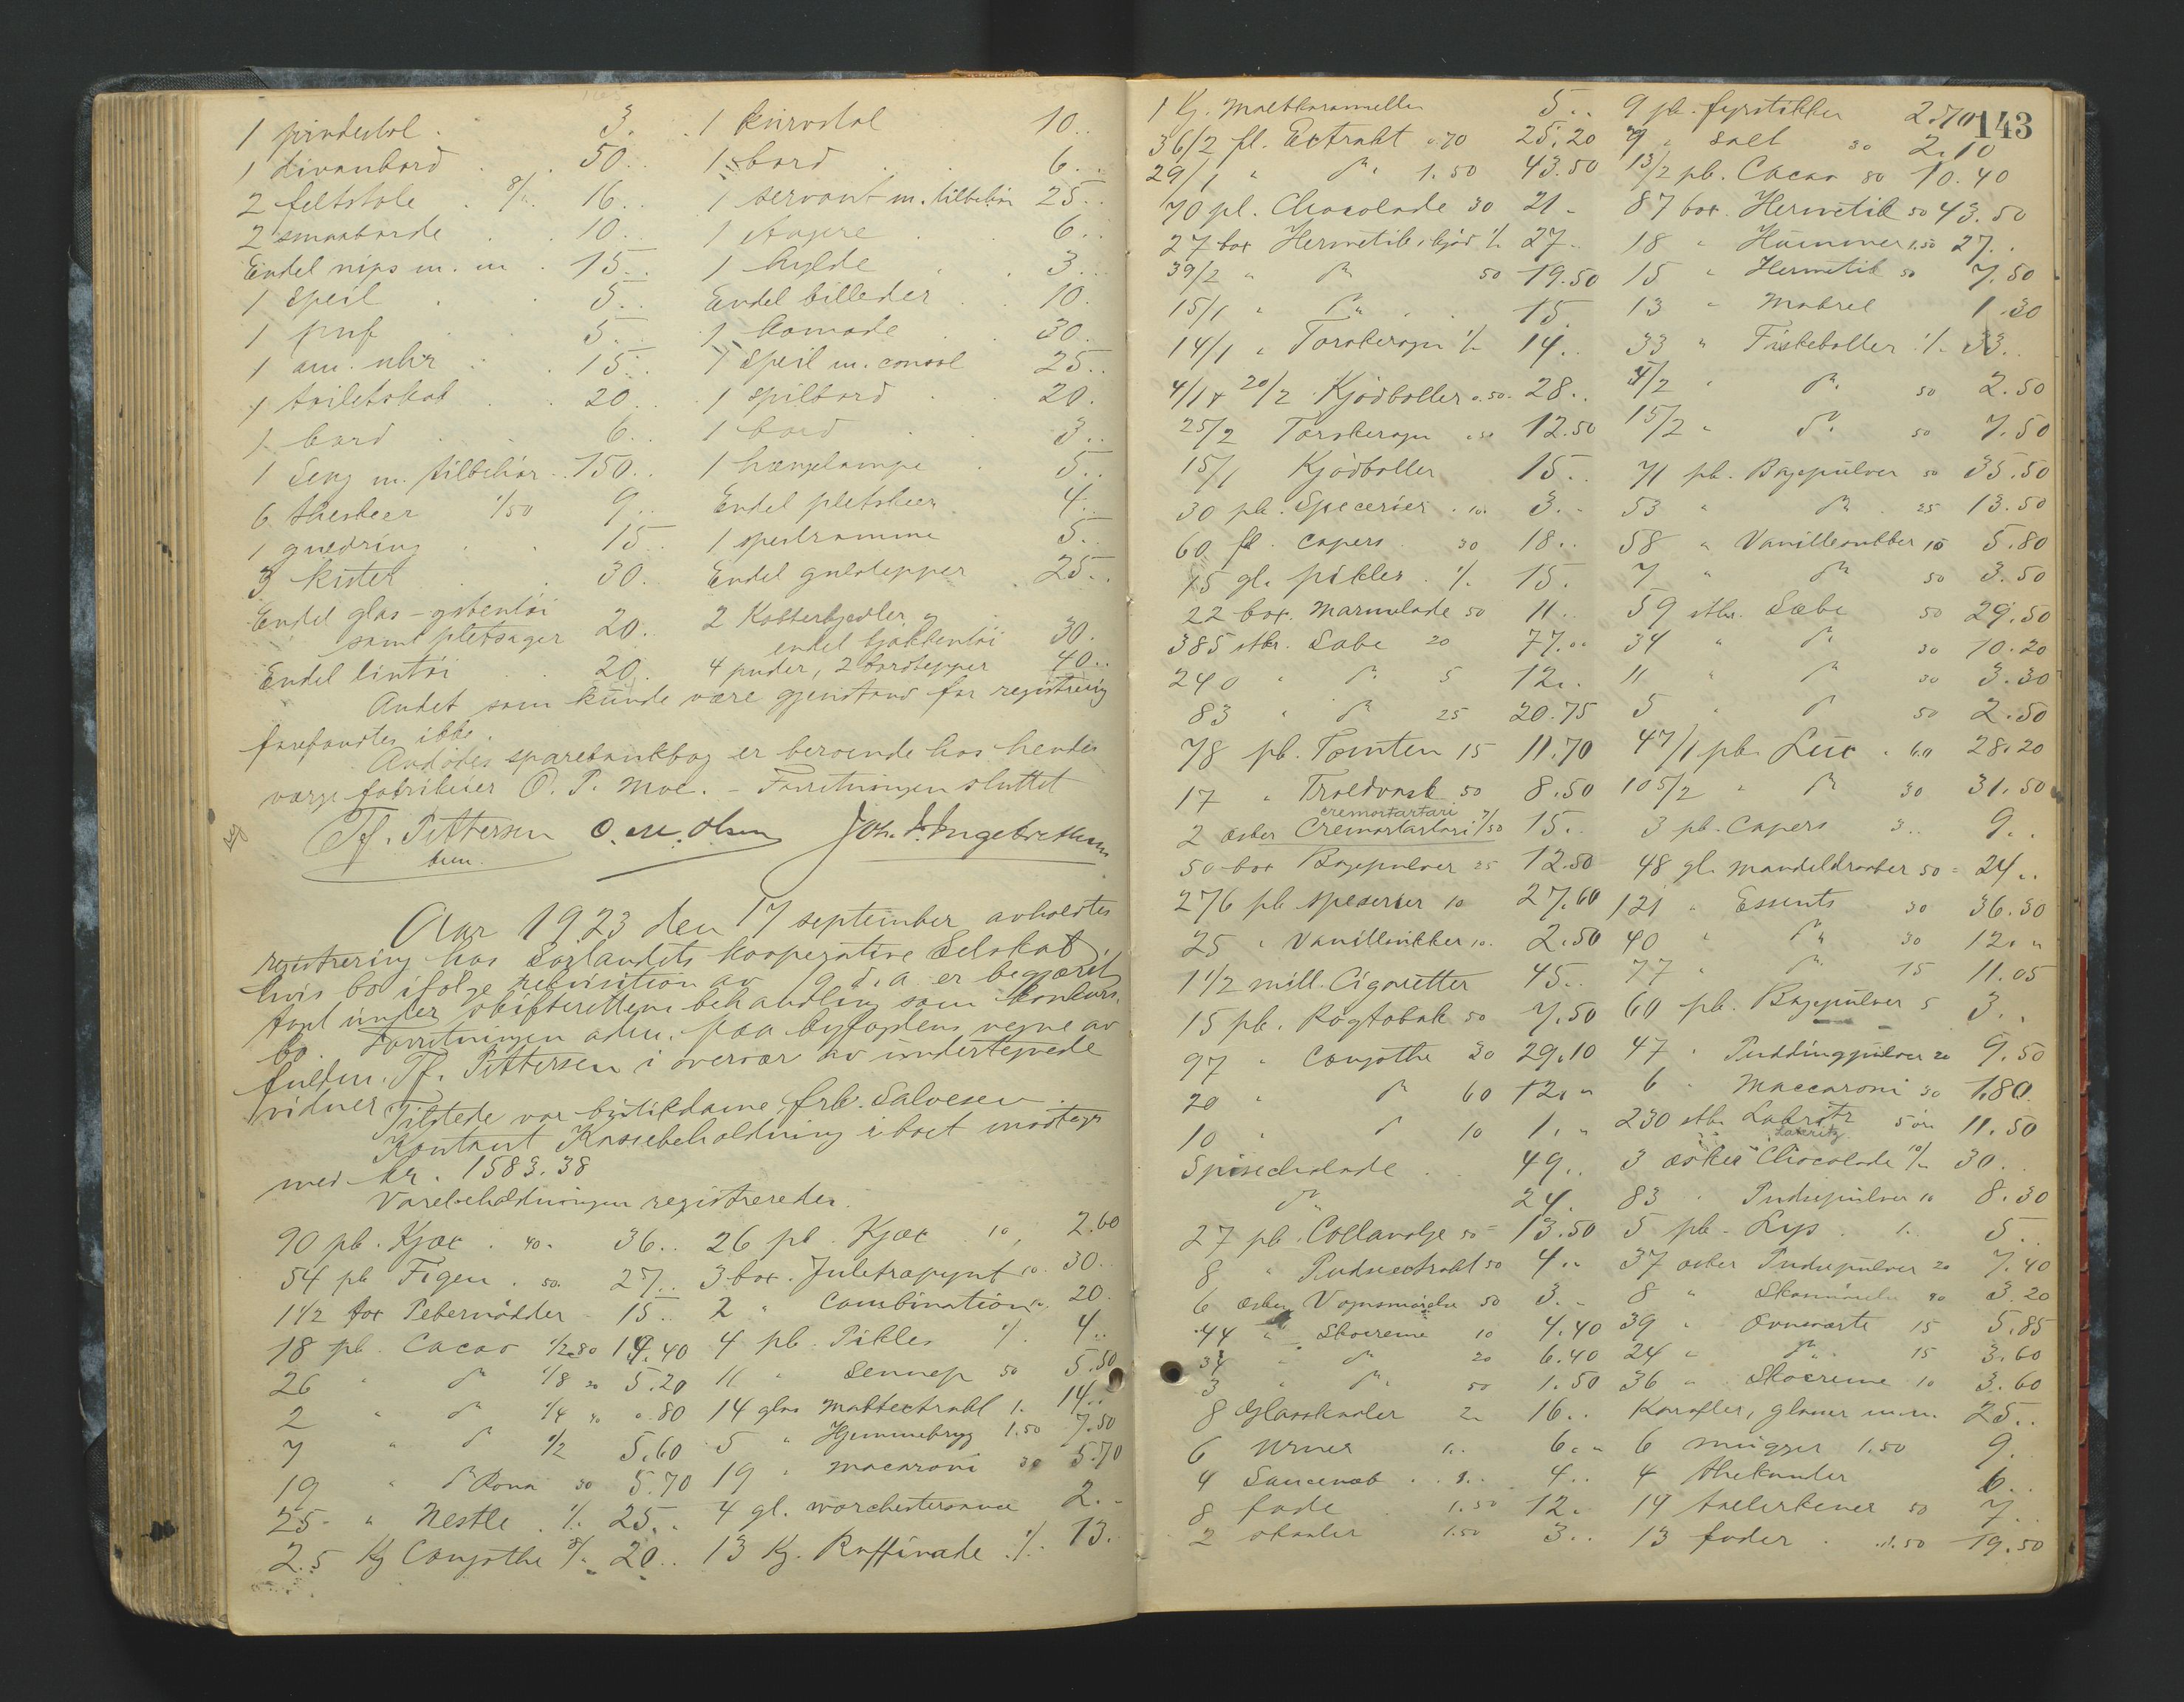 1 pindestol . 3. .
1 divanbord . 50. .
2 feltstole . 8/- 16. .
2 smaaborde . 10. .
Endel nips m. m . 15. .
1 speil . 5. .
1 puf 5. .
1 am. uhr . 15. .
1 toiletskab . 20. .
1 bord . 6. .
1 Seng m. tilbehør . 150. .
6 theskeer 1/50 9. .
1 guldring . 15. .
3 kister 30.
Endel glas- og stentøi
samt pletsager 20.
Endel lintøi . 20.
1 kurvstol 10. .
1 bord . 6. .
1 servant m. tilbehør 25. .
1 etagere . 6. .
1 hylde . 3. .
Endel billeder . 10.
1 komode . 30.
1 speil m. consol 25. .
1 spilbord . 20.
1 bord . 3. .
1 hængelampe . 5. .
Endel pletskeer 4. .
1 speilramme 5. .
Endel gulvtepper . 25. .
2 Kobberkjedler og
endel kjøkkentøi 30.
4 puder, 2 bordtepper 40. .
Andet som kunde være gjenstand for registrering
forefandtes ikke.
Avdødes sparebankbog er beroende hos hendes
verge fabrikeier O. P. Moe. - Forretningen sluttet
Tf. Pettersen O. M. Olsen Joh. Ingebretsen
fuldm.
Aar 1923 den 17 september avholdtes
registrering hos Sørlandets kooperative Selskab,
hvis bo ifølge rekvisition av 9 d. a. er begjæret
tat under skifterettens behandling som konkurs-
bo. Forretningen adm. paa byfogdens vegne av
fuldm. Tf. Pettersen i overvær av undertegnede
vidner
Tilstede var butikdame frk. Salvesen.
Kontant Kassebeholdning i boet modtages
med kr. 1583.38
Varebeholdningen registreredes.
90 pk. Kjæx . 40. 36. .
54 pk Figen . 50. 27. .
1 1/2 box Pebernødder - 15
18 pk. Cacao 1/2 80 14.40
26 " do 1/8 20 5.20
2 " do 1/4 40 0.80
7 " do 1/2 5.60
19 " do Rona 30 5.70
25 " Nestle 1/- 25. .
2.5 Kg Congothe 8/- 20. .
26 pk. Kjæx 10, 2.60
3 box. Juletrapynt 10. 30. .
2 " Combination 20.
4 pk. Pikles 1/- 4. .
11 " Sennep 50 5.50
14 glas Maltextrakt 1. 14. .
5 " Hjemmebryg 1.50 7.50
19 " Macaroni 30 5.70
4 gl. worchestersauce 2. -
13 Kg. Raffinade 1/- 13.
143
1 Kg. Maltkarameller 5. .
36/2 fl. Extrakt 0.70 25.20
29/1 " do. 1.50 43.50
70 pl. Chocolade 30 21 -
27 box Hermetik kjød 1/- 27. .
39/2 " do 50 19.50
15/1 " do . . 15
14/1 " Torskerogn 1/- 14. .
4/1 + 20/2 Kjødboller 0.50. 28. .
25/2 Torskerogn 0.50 12.50
15/1 Kjødboller 15. .
30 pk. Specerier . 10. 3. -
60 fl. capers 30 18. .
15 gl. pikles . 1/- 15.
22 box. Marmelade 50 11. .
385 stk. Sæbe 20 77.00
240 " do 5 12. .
83 " do 25 20.75
78 pk. Tomten 15 11.70
17 " Troldvask 50 8.50
cremortartari
2 æsker Cremortartari 7/50 15. .
50 box Bagepulver 25 12.50
276 pk speserier 10 27.60
25 " Vanillesukker 10. 2.50
1 1/2 mill. Cigaretter 45. .
15 pk. Røgtobak 50 7.50
97 " Congothe 30 29.10
20 " do 60 12. "
10 " do 10 1. "
Spisechokolade 49. .
do 24.
27 pk. Collanolje 50 - 13.50
8 " Pudseextrakt 50 4. "
6 æsker Vognsmørelse 50 3. -
44 " Skocreme 10 4.40
34 " do 20 6.40
3 " do 50 1.50
8 Glasskaaler 2. 16. .
6 Urner 1. . 6. "
4 Saucenæb . 1. . 4. .
8 fade 1.50 12. "
2 skaaler 1.50 3. .
9 pk. fyrstikker 2.70
7 " salt 30 2.10
13/2 pk. Cacao 80 10.40
87 box. Hermetik 50 43.50
18 " Hummer 1.50 27. .
15 " Hermetik 50 7.50
13 " Makrel 1.30
33 " Fiskeboller 1/- 33. .
5/2 " do. 50 2.50
15/2 " do. 50 7.50
71 pk. Bagepulver 50 35.50
53 " do 25 13.50
58 " Vanillesukker 10 5.80
7 " do 50 3.50
59 stk. Sæbe 50 29.50
34 " do 30 10.20
11 " do 30 3.30
5 " do 50 2.50
47/1 pk. Lux . 60 28.20
105/2 " do 30 31.50
3 pk. Capers 3. . 9. .
48 gl. mandeldraaber 50 - 24. .
121 " Essents 30 36.30
40 " do 30 12. "
77 " do 15 11.05
60 pk. Bagepulver 5 3. .
47 " Puddingpulver 20 9.50
6 " Maccaroni 30 1.80
230 stk. Lakrits 5 øre 11.50
Lakrits
3 æsker Chocolade 10/- 30. .
83 " Pudsepulver 10 8.30
5 pk. Lys . 1. 5. .
37 æsker Pudsepulver 20 7.40
8 " Skosmørelse 40 3.20
39 " Ovnsværte 15 5.85
24 " do. 15 3.60
36 " Skocreme 10 3.60
Karafler, glasser m.m. 25. .
6 mugger 1.50 9.
4 thekander 6. .
14 tallerkener 50 7.
13 fader . 1.50 19.50